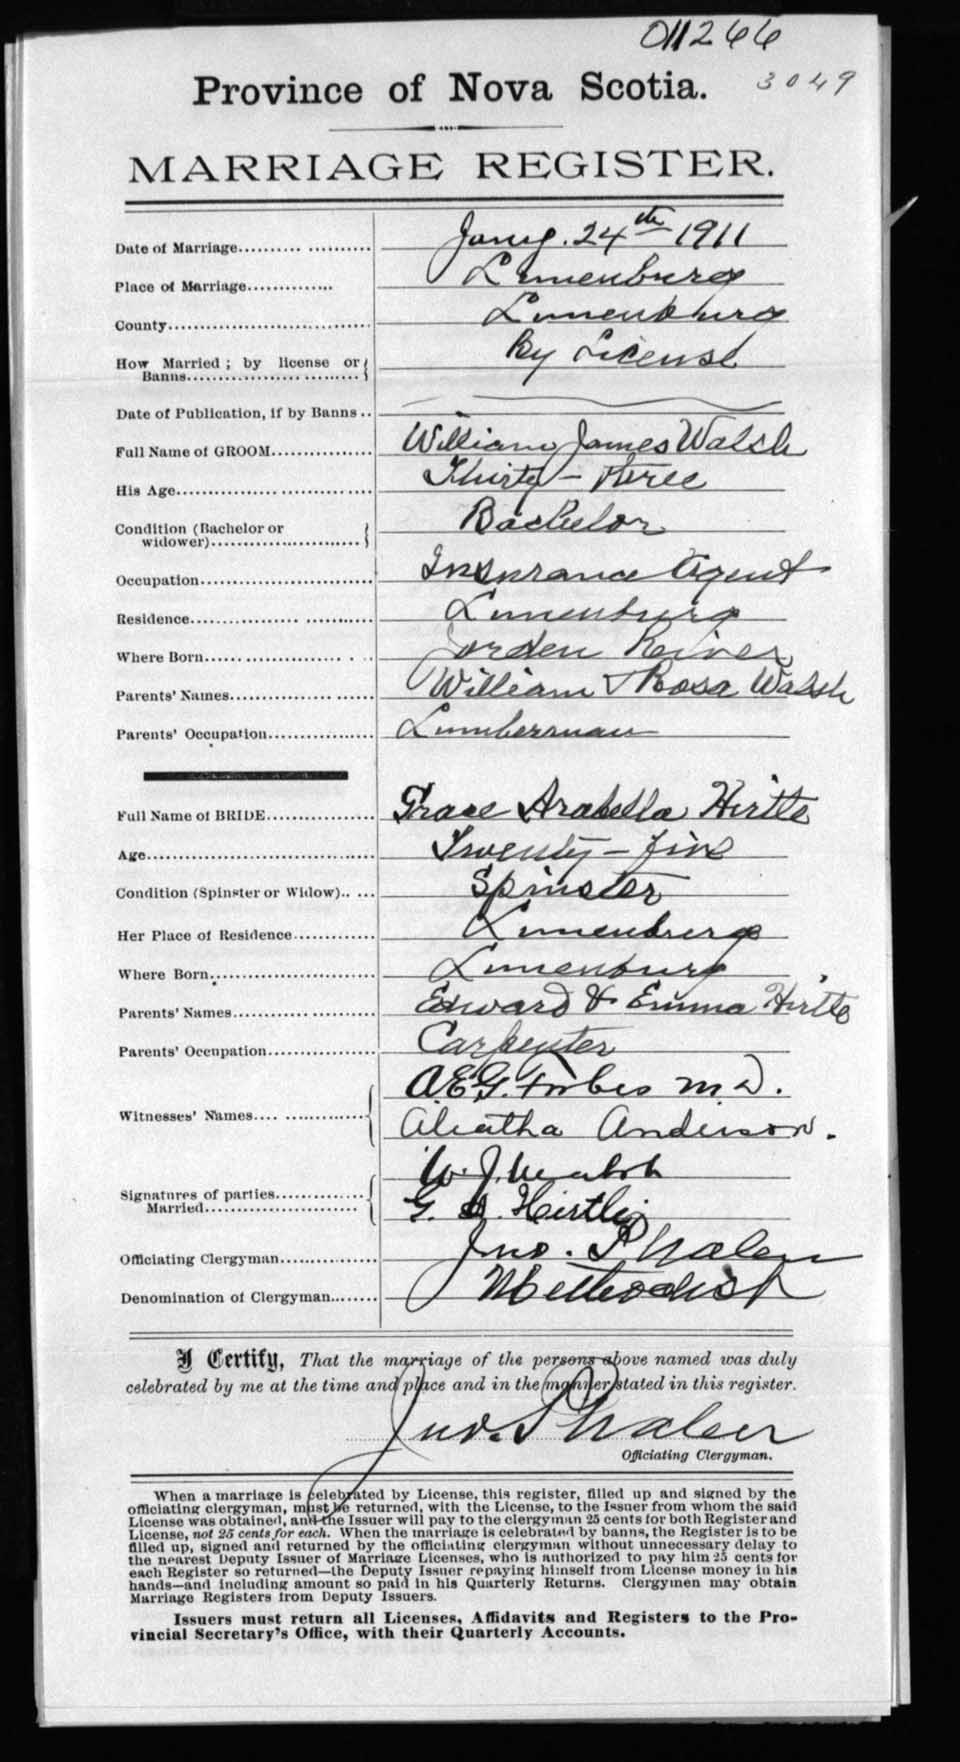 011266
Province of Nova Scotia. 3049
MARRIAGE REGISTER.
Date of Marriage.......... ........... Jany. 24th 1911
Place of Marriage............. Lunenburg
County.................................. Lunenburg
How Married ; by license or By License
Banns...................... .........
Date of Publication, if by Banns ..
Full Name of GROOM................. William James Walsh
His Age.................. ................ Thirty - three
Condition (Bachelor or Bachelor
widower).........................
Occupation............................. Insurance Agent
Residence.................. ........... Lunenburg
Where Born....................... . .. Jorden River
Parents' Names................. ...... William & Rosa Walsh
Parents' Occupation................. Lumberman
Full Name of BRIDE................. Grace Arabella Hirtle
Age...................................... Twenty - five
Condition (Spinster or Widow).. ... Spinster
Her Place of Residence............. Lunenburg
Where Born........................... Lunenburg
Parents' Names............ ........... Edward & Emma Hirtle
Parents' Occupation................. Carpenter
A.E.G. Forbes M.D.
Witnesses' Names.... ..............
Aleatha Anderson.
W. J. Walsh
Signatures of parties..............
Married.........................
G. A. Hirtle
Officiating Clergyman............... Jno. Phalen
Denomination of Clergyman........ Methodist
I Certify, That the marriage of the persons above named was duly
celebrated by me at the time and place and in the manner stated in this register.
Jno. Phalen
Officiating Clergyman.
When a marriage is celebrated by License, this register, filled up and signed by the
officiating clergyman, must be returned, with the License, to the Issuer from whom the said
License was obtained, and the Issuer will pay to the clergyman 25 cents for both Register and
License, not 25 cents for each. When the marriage is celebrated by banns, the Register is to be
filled up, signed and returned by the officiating clergyman without unnecessary delay to
the nearest Deputy Issuer of Marriage Licenses, who is authorized to pay him 25 cents for
each Register so returned—the Deputy Issuer repaying himself from License money in his
hands—and including amount so paid in his Quarterly Returns. Clergymen may obtain
Marriage Registers from Deputy Issuers.
Issuers must return all Licenses, Affidavits and Registers to the Pro-
vincial Secretary's Office, with their Quarterly Accounts.